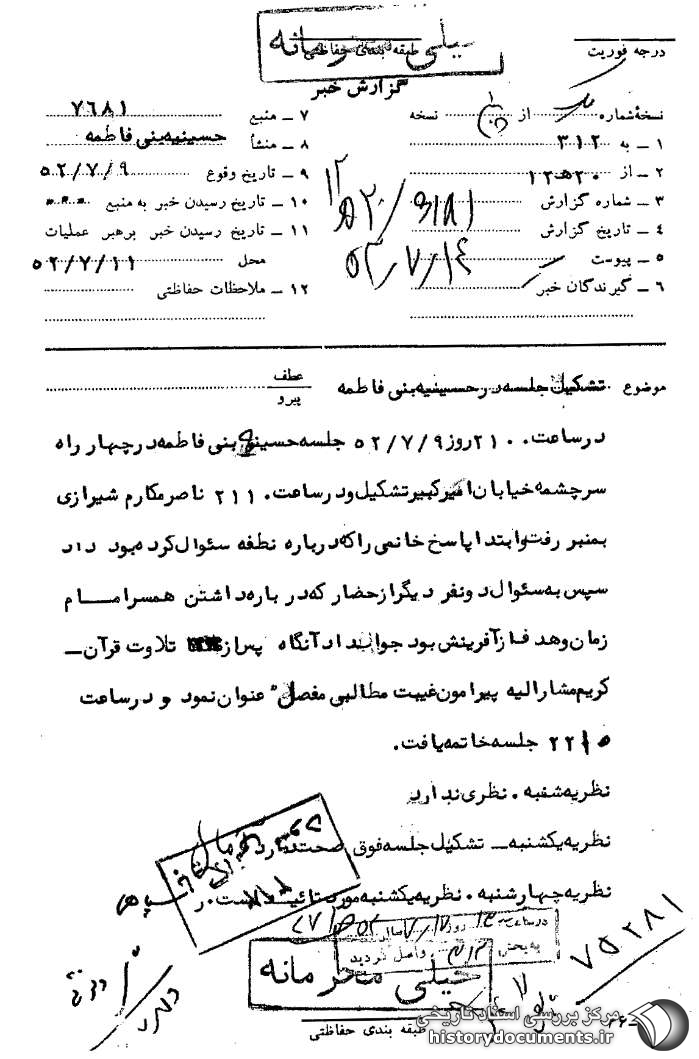 خیلی محرمانه
طبقه بندی حفاظتی
درجه فوریت
گزارش خبر
نسخه شماره از نسخه
۱ ــ به ۳۱۲
۲ ــ از ۲۰ ه ۱۲
۳ ــ شماره گزارش
۴ ــ تاریخ گزارش ۵۲/۷/۱۴
۵ ــ پیوست
۶ ــ گیرندگان خبر
۷ ــ منبع ۷۶۸۱
۸ ــ منشأ حسینیه بنی فاطمه
۹ ــ تاریخ وقوع ۵۲/۷/۹
۱۰ ــ تاریخ رسیدن خبر به منبع
۱۱ ــ تاریخ رسیدن خبر برهبر عملیات
محل ۵۲/۷/۱۱
۱۲ ــ ملاحظات حفاظتی
موضوع تشکیل جلسه در حسینیه بنی فاطمه
عطف
پیرو
در ساعت ۲۱۰۰ روز ۵۲/۷/۹ جلسه حسینیه بنی فاطمه در چهار راه
سرچشمه خیابان امیرکبیر تشکیل و در ساعت ۲۱۱۰ ناصر مکارم شیرازی
بمنبر رفت و ابتدا پاسخ خانمی را که درباره نطفه سئوال کرده بود داد
سپس به سئوال دو نفر دیگر از حضار که در باره داشتن همسر امام
زمان و هدف از آفرینش بود جواب داد آنگاه پس از تلاوت قرآن ــ
کریم مشارالیه پیرامون غیبت مطالبی مفصل عنوان نمود و در ساعت
۲۲۱۵ جلسه خاتمه یافت.
نظریه شنبه . نظری ندارد
نظریه یکشنبه ــ تشکیل جلسه فوق صحت دارد
نظریه چهارشنبه . نظریه یکشنبه مورد تائید است.
در ساعت روز
به بخش ۳۱۲ واصل گردید
۷۵۲۸۱
خیلی محرمانه
طبقه بندی حفاظتی
مرکز بررسی اسناد تاریخی
historydocuments.ir